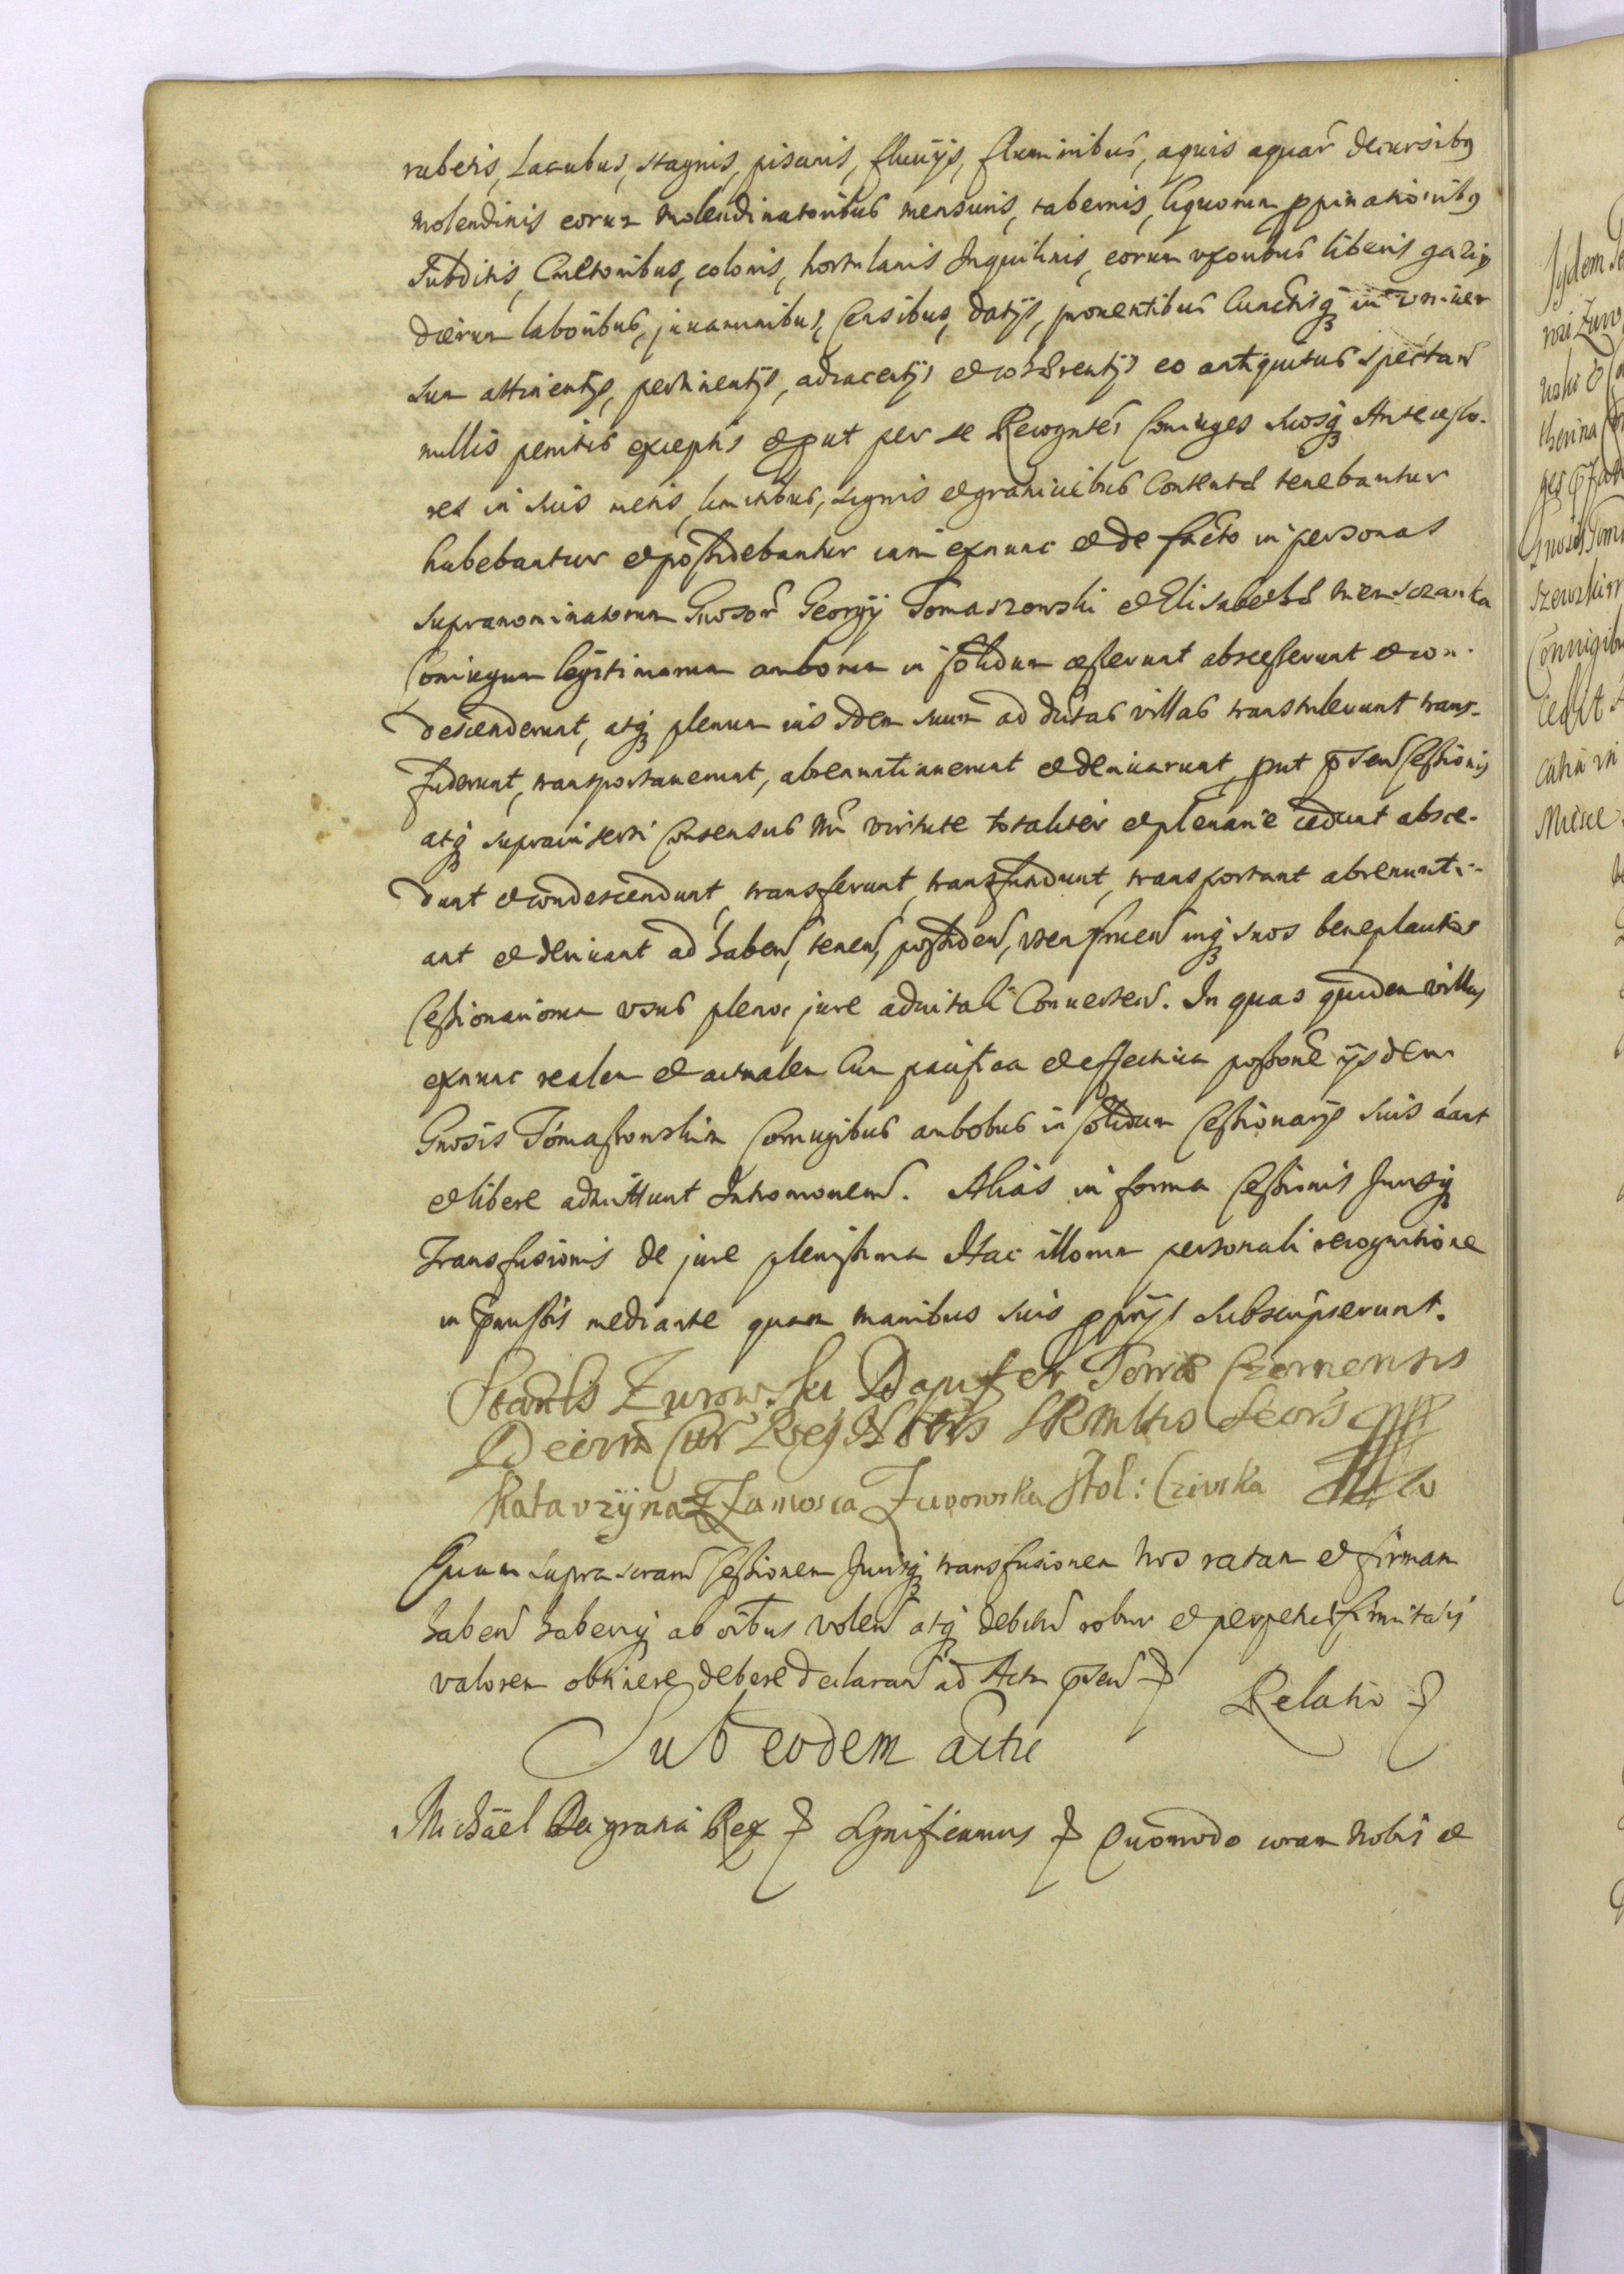 rubetis, Lacubus, stagnis, piscinis, fluvijs, fluminibus, aquis aquar decursibq
molendinis eorum molendinatoribus mensuris, tabernis, liquorum ppinationibq
Subditis, Cmetonibus, colonis, hortulanis Inquilinis, eorum vxoribus liberis gazis
dierum laboribus, juvaminibus, Censibus, datijs, proventibus Cunctisq in vniver
sum attinentijs, pertinentijs, adiacentijs et cohærentijs eo antiquitus spectan
nullis penitus exceptis et put per se Recognten Coniuges suosq Antecesso-
res in suis metis, limitibus, signis et granicibus Contenta tenebantur
habebantur et possidebantur iam exnunc et de facto in personas
supranominatorum Gnosor Georgij Tomaszowski et Elisabethæ
Coniugum legitimorum amborum in solidum cesserunt abscesserunt et con-
descenderunt, atq plenum ius idem suum ad dictas villas transtulerunt trans-
fuderunt, transportaverunt, abrenuntiaverunt et derivarunt, put pnten Cessionis
atq suprainserti Consensus Nri virtute totaliter et plenarie cedunt absce-
dunt et condescendunt, transferunt, transfundunt, transportant abrenunti-
ant et derivant ad haben, tenen, possiden, vten fruen inq suos beneplacitos
Cessionariorum vsus pleno jure advitali Converten. In quas quidem villas
exnunc realem et actualem Cum pacifica et effectiva possone ijsdem
Gnosis Tomaszowskim Coniugibus ambobus in solidum Cessionarijs suis dant
et libere admittunt Intromonem. Alias in forma Cessionis Jurisq
Transfusionis de jure plenissima Hac illorum personali recognitione
in pmissis mediante quam manibus suis pprijs subscripserunt.
Stanls Zurowski Dapifer Terræ Czernensis
Katarzÿna z Zamoscia Zurowska Stol: Czirska
Quam supra scram Cessionem Jurisq transfusionem Nos ratam et firmam
haben haberiq ab oibus volen atq debitu robur et perpetuæ firmitatis
valorem obtinere debere declaran ad Acta pnten
Relatio
Sub eodem actu
Michael Dei gratia Rex Significamus Quomodo coram Nobis et